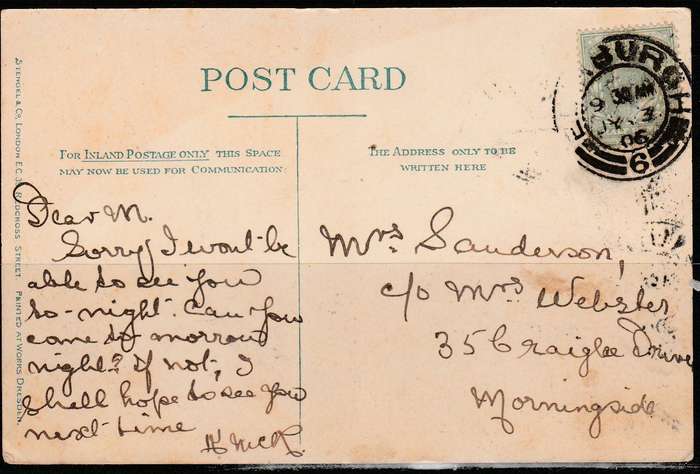 POST CARD
FOR INLAND POSTAGE ONLY THIS SPACE
MAY NOW BE USED FOR COMMUNICATION
THE ADDRESS ONLY TO BE
WRITTEN HERE
STENGEL & CO, LONDON E.C. 39 REDCROSS STREET PRINTED AT WORKS DRESDEN.
BURGH
9 30 AM
JY 3
06
6
Dear M.
Sorry I wont be
able to see you
to-night. Can you
come to morrow
night? If not, I
shall hope to see you
next time
Mrs Sanderson,
c/o Mrs Webster
35 Craiglea Drive
Morningside